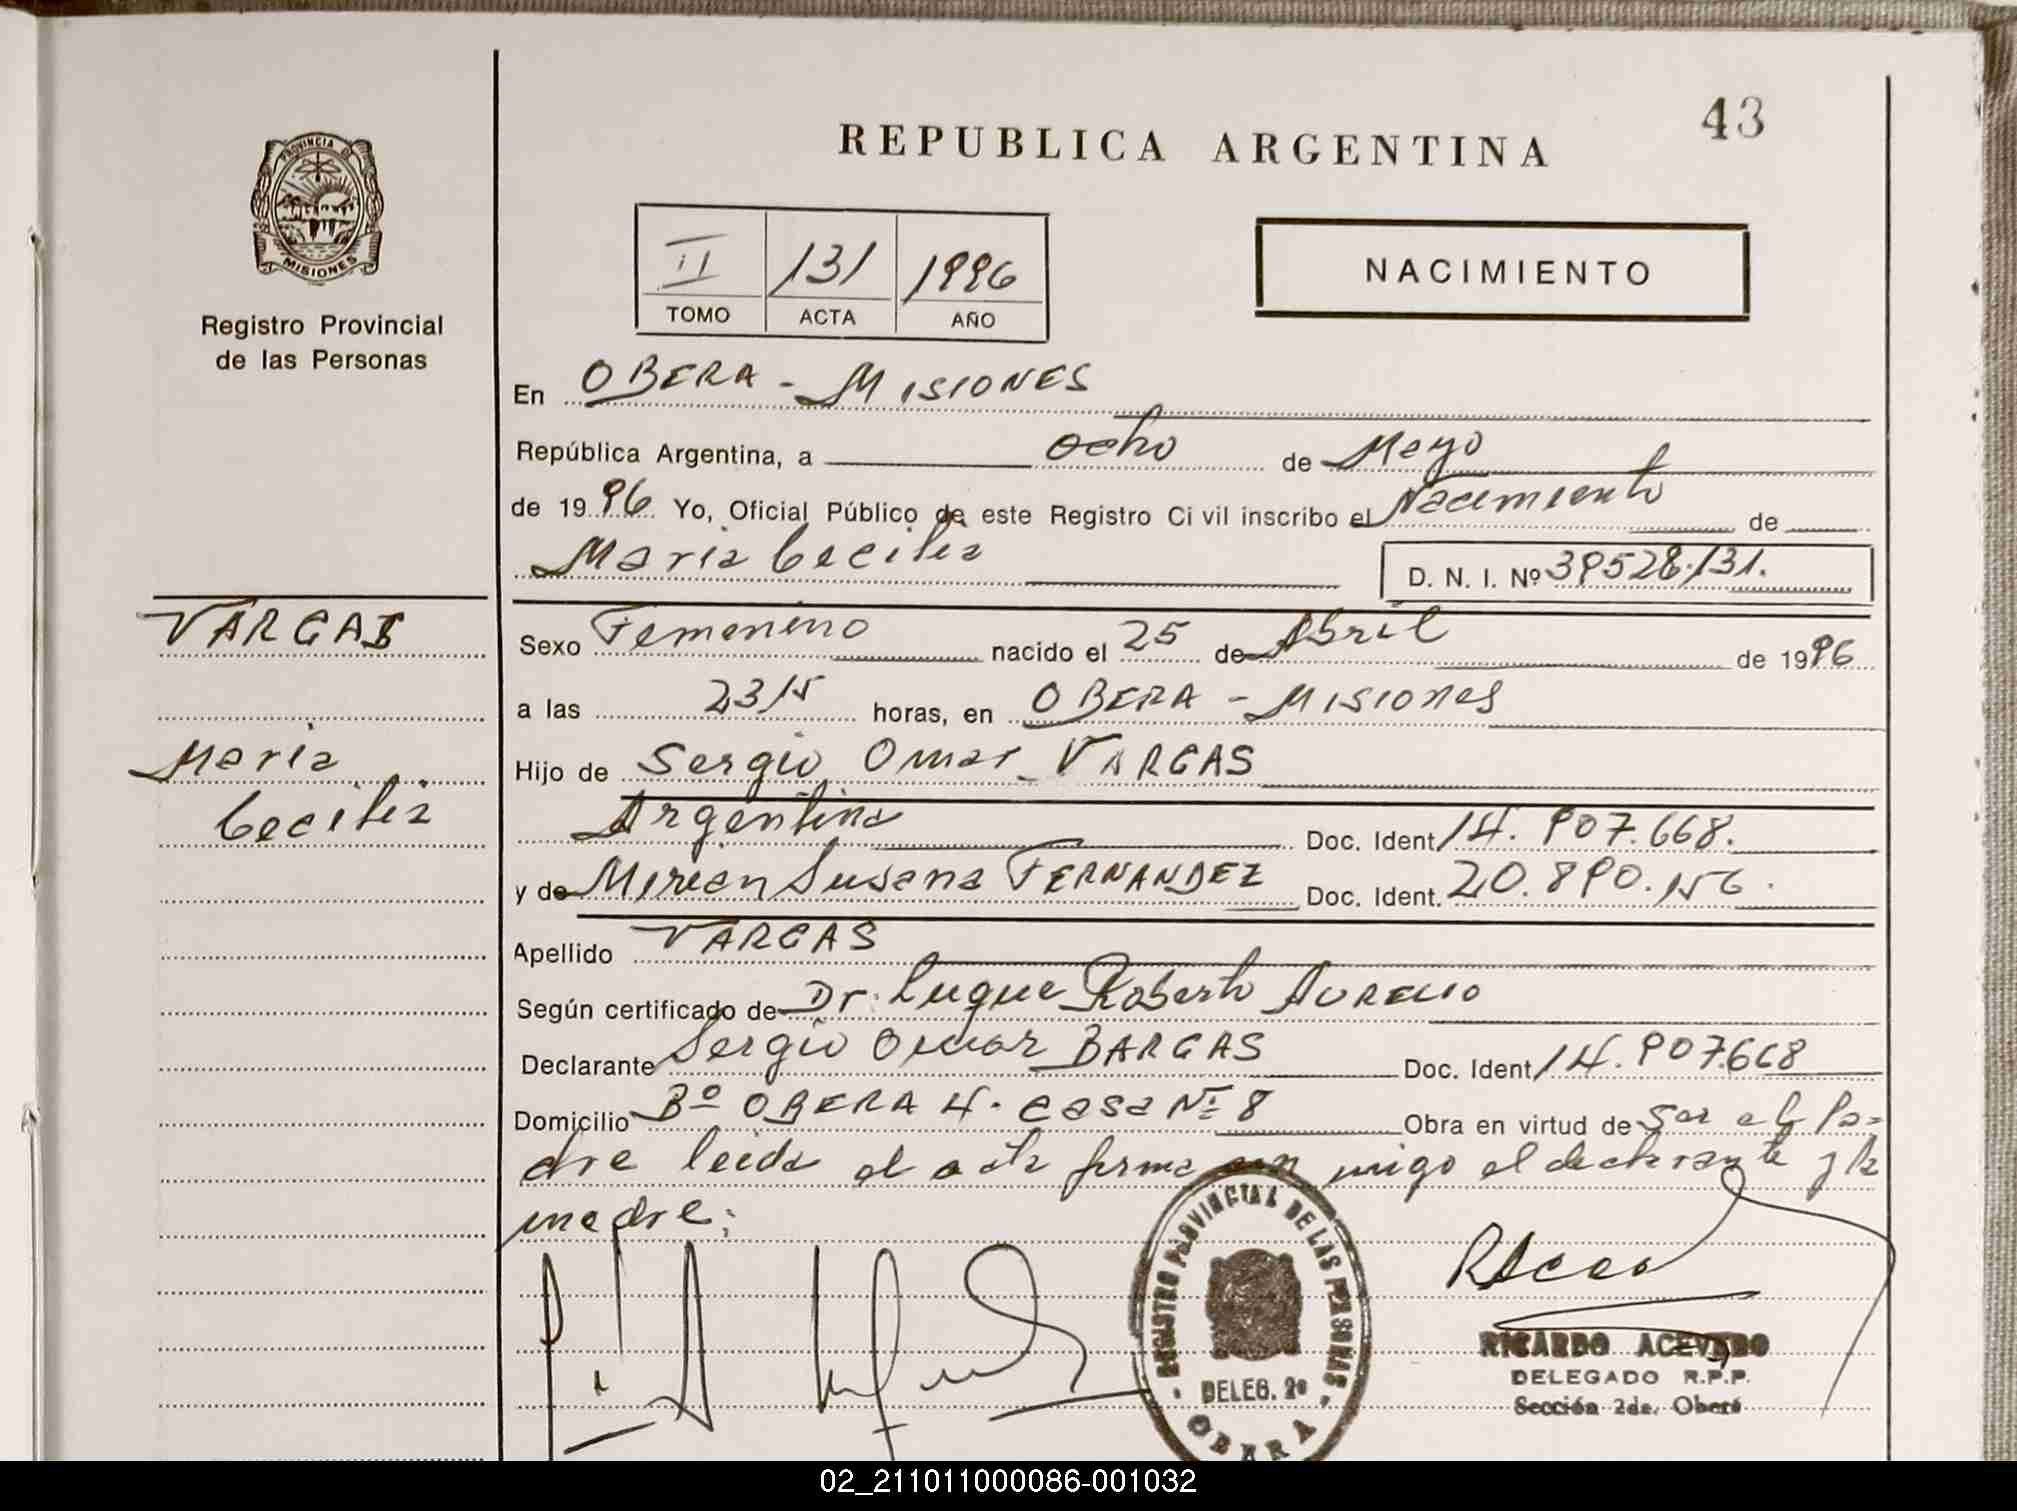 43
REPUBLICA ARGENTINA
PROVINCIA DE
MISIONES
Registro Provincial
de las Personas
II 131 1996
TOMO ACTA AÑO
NACIMIENTO
En OBERA - MISIONES
República Argentina, a ocho de Mayo
de 1996 Yo, Oficial Público de este Registro Civil inscribo el Nacimiento de
Maria Cecilia D. N. I. Nº 39528.131.
VARGAS
Maria
Cecilia
Sexo Femenino nacido el 25 de Abril de 1996
a las 2315 horas, en OBERA - MISIONES
Hijo de Sergio Omar VARGAS
Argentina Doc. Ident 14.907.668.
y de Mirian Susana FERNANDEZ Doc. Ident. 20.890.156.
Apellido VARGAS
Según certificado de Dr. Luque Roberto AURELIO
Declarante Sergio Omar BARGAS Doc. Ident 14.907.668
Domicilio Bº OBERA 4. casa Nº 8 Obra en virtud de ser el Pa-
dre leida el acta firma con migo el declarante y la
madre;
REGISTRO PROVINCIAL DE LAS PERSONAS
DELEG. 2º
OBERA
RICARDO ACEVEDO
DELEGADO R.P.P.
Sección 2da. Oberá
02_211011000086-001032